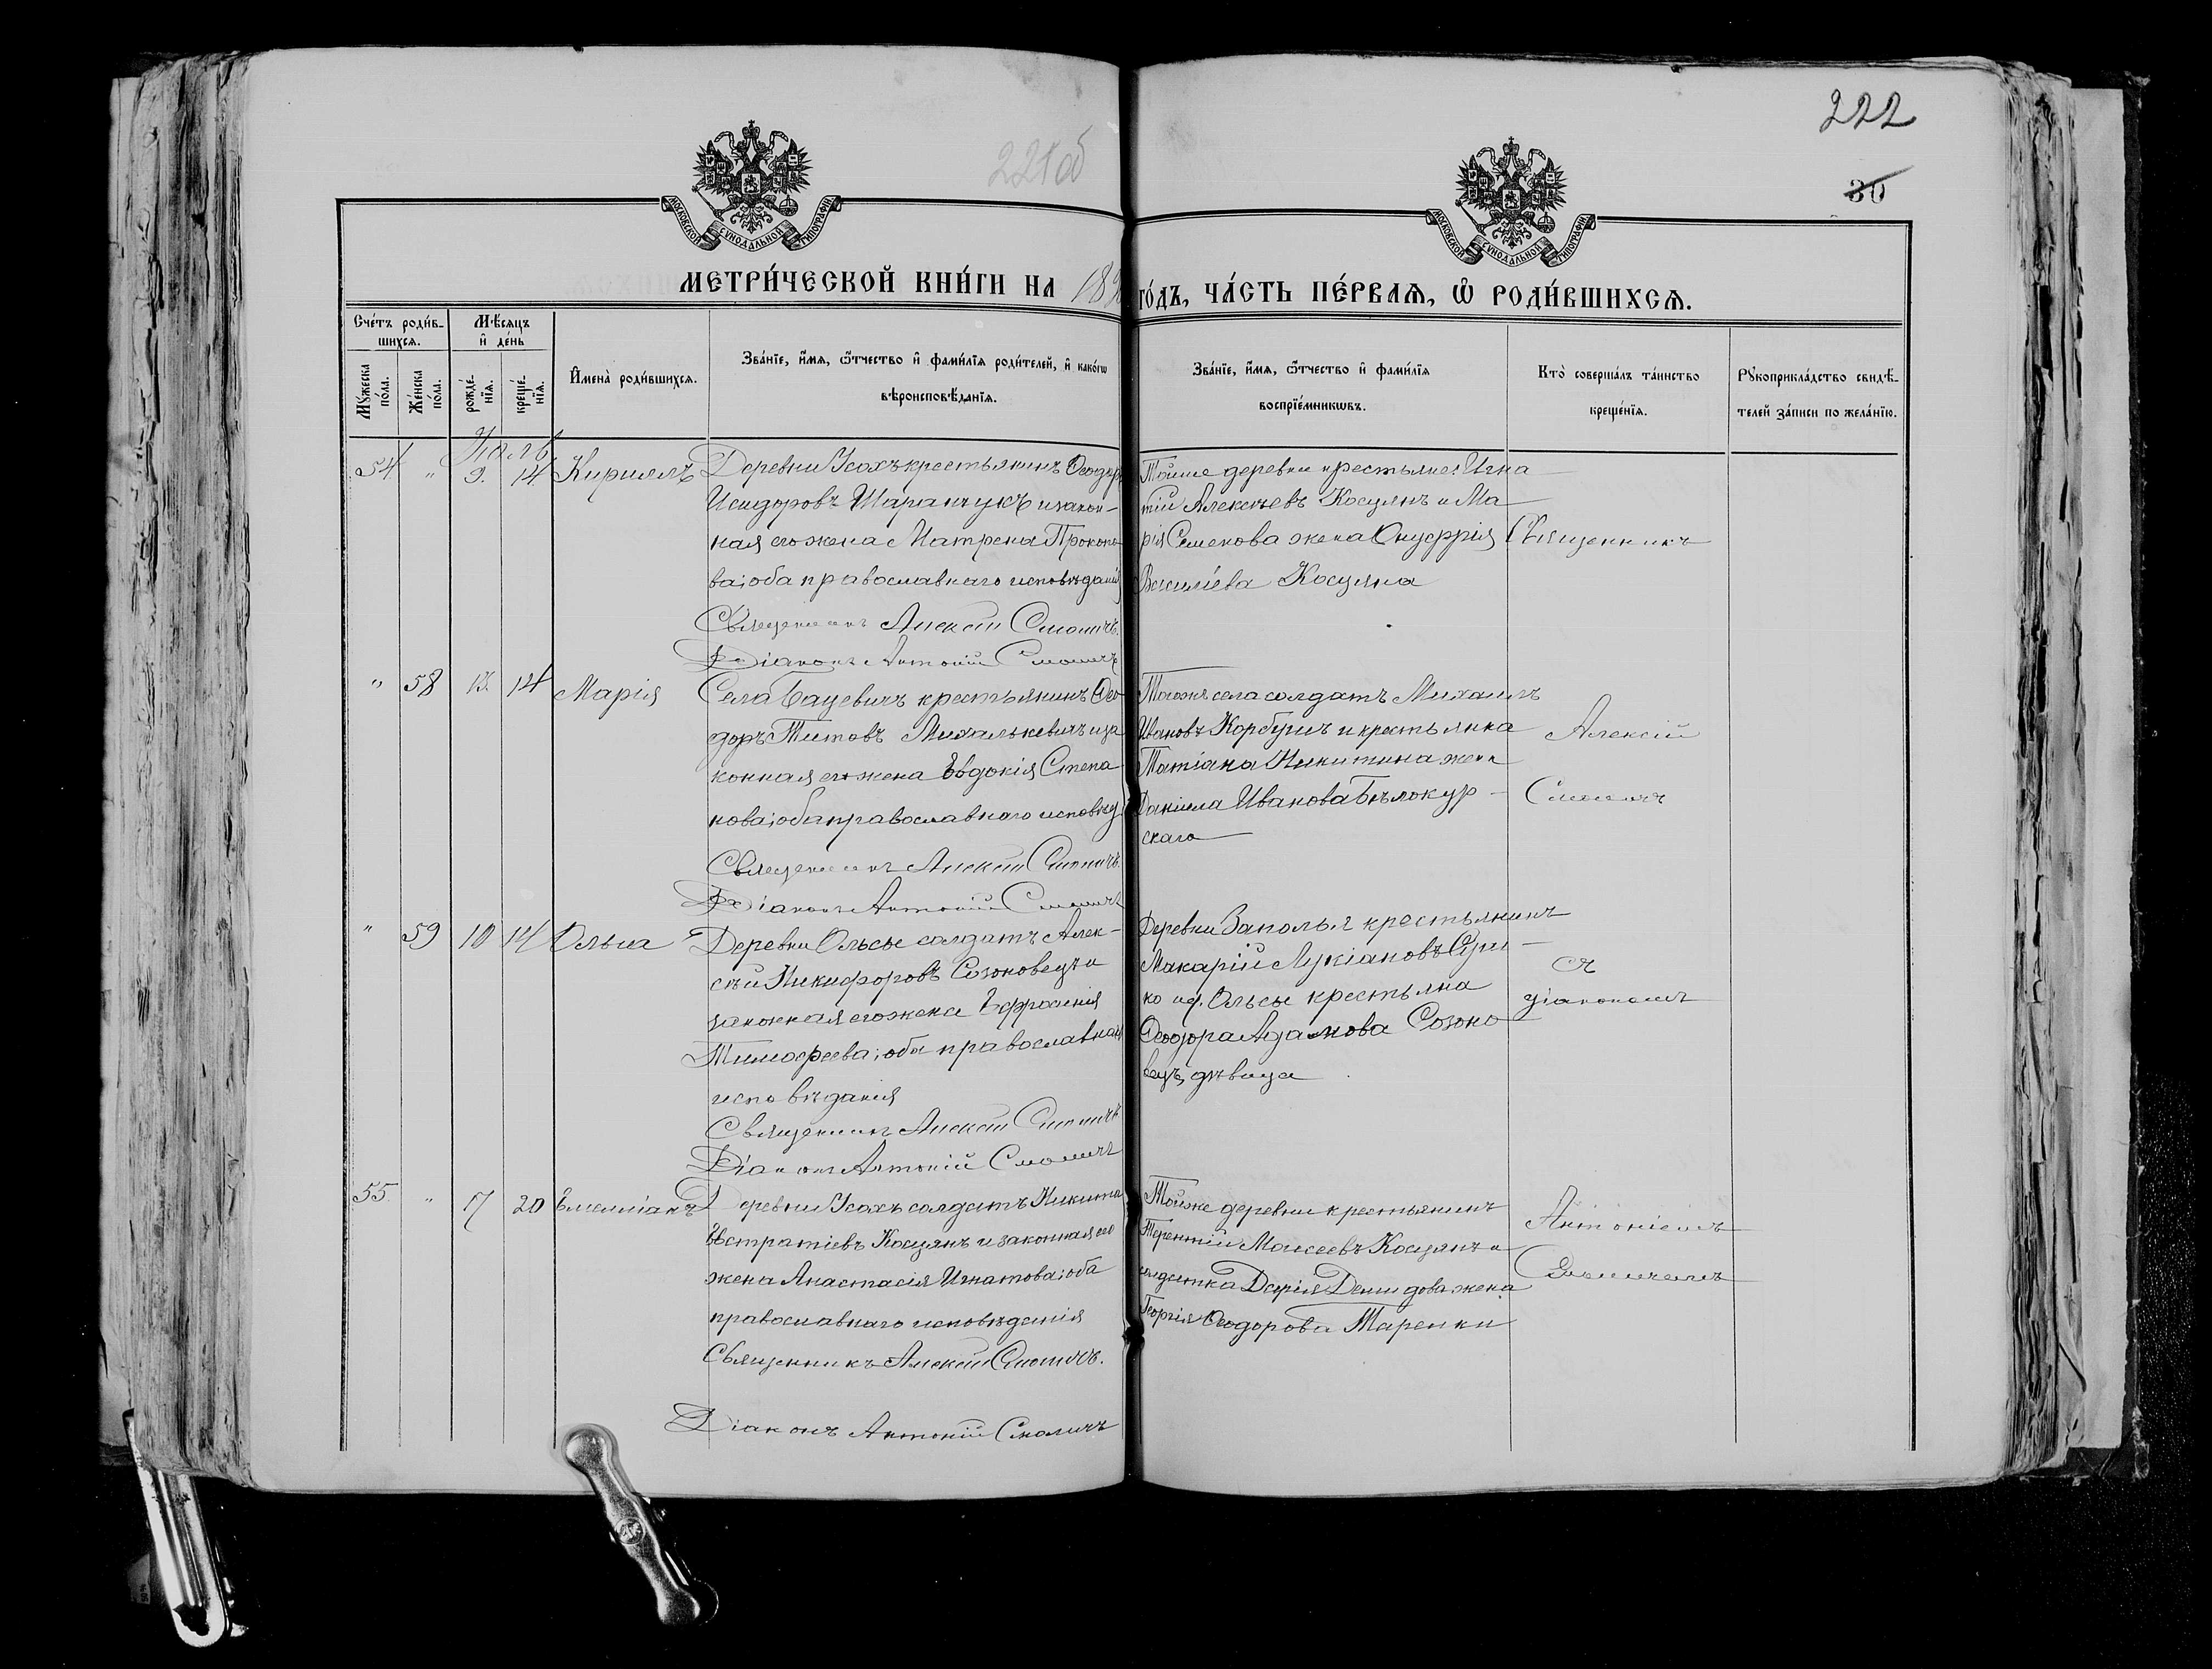 221об
222
30
МОСКОВСКОЙ СУНОДАЛЬНОЙ ТИПОГРАФІИ
МОСКОВСКОЙ СУНОДАЛЬНОЙ ТИПОГРАФІИ
МЕТРИ́ЧЕСКОЙ КНИ́ГИ НА 189
ГО́ДЪ, ЧА́СТЬ ПЕ́РВАѦ, Ѿ РОДИ́ВШИХСѦ.
Сче́тъ роди́в-
шихсѧ.
Мꙋ́жеска по́ла.
Же́нска по́ла.
Мѣ́сѧцъ и҆ де́нь
рожде́-нїѧ.
креще́-нїѧ.
И҆мена̀ роди́вшихсѧ.
Зва́нїе, и҆́мѧ, ѻ҆́тчество и҆ фами́лїѧ роди́телей, и҆ како́гѡ
вѣроисповѣ́данїѧ.
Зва́нїе, и҆́мѧ, ѻ҆́тчество и҆ фами́лїѧ
воспрїе́мникѡвъ.
Кто̀ соверша́лъ та́инство
креще́нїѧ.
Рꙋкоприкла́дство свидѣ́-
телей за́писи по жела́нїю.
Іюль
54 " 9. 14. Кириллъ
Деревни Усохъ крестьянинъ Ѳеодоръ
Исидоровъ Шаранчукъ и закон-
ная его жена Матрена Прокопо
ва; оба православнаго исповѣданія
Священникъ Алексій Смоличъ.
Діаконъ Антоній Смоличъ
Тойже деревни крестьяне: Игна
тій Алексѣевъ Косцянъ и Ма
рія Семенова жена Онуфрія
Василіева Косцяна
Священникъ
" 58 13. 14 Марія
Села Бацевичъ крестьянинъ Ѳео
доръ Титовъ Михалькевичъ и за
конная его жена Евдокія Степа
нова; оба православнаго исповѣд
Священникъ Алексій Смоличъ.
Діаконъ Антоній Смоличъ
Тогожъ села солдатъ Михаилъ
Ивановъ Корбутъ и крестьянка
Татіана Никитина жена
Даніила Иванова Бѣлокур-
скаго
Алексій
Смоличъ
" 59 10 14 Ольга
Деревни Ольсы солдатъ Алек-
сѣй Никифоровъ Созоновецъ и
законная его жена Ефросинія
Тимоѳеева; оба православнаго
исповѣданія
Священникъ Алексій Смоличъ
Діаконъ Антоній Смоличъ
Деревни Заполья крестьянинъ
Макарій Лукіановъ
ко и д. Ольсы крестьянка
Ѳеодора Адамова Созоно
вецъ, дѣвица
съ
діакономъ
55. " 17 20 Емелліанъ
Деревни Усохъ солдатъ Никита
Евстратіевъ Косцянъ и законная его
жена Анастасія Игнатова; оба
православнаго исповѣданія
Священникъ Алексій Смоличъ.
Діаконъ Антоній Смоличъ
Тойже деревни крестьянинъ
Терентій Моисеевъ Косцянъ и
солдатка Дарія Демидова жена
Георгія Ѳеодорова Таренки
Антоніемъ
Смоличемъ